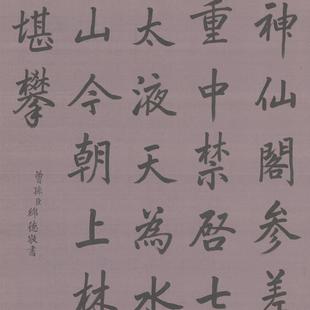 神仙閣參差
重中禁啓七
太液天為水
山今朝上林
堪攀
曾孫臣綿德敬書